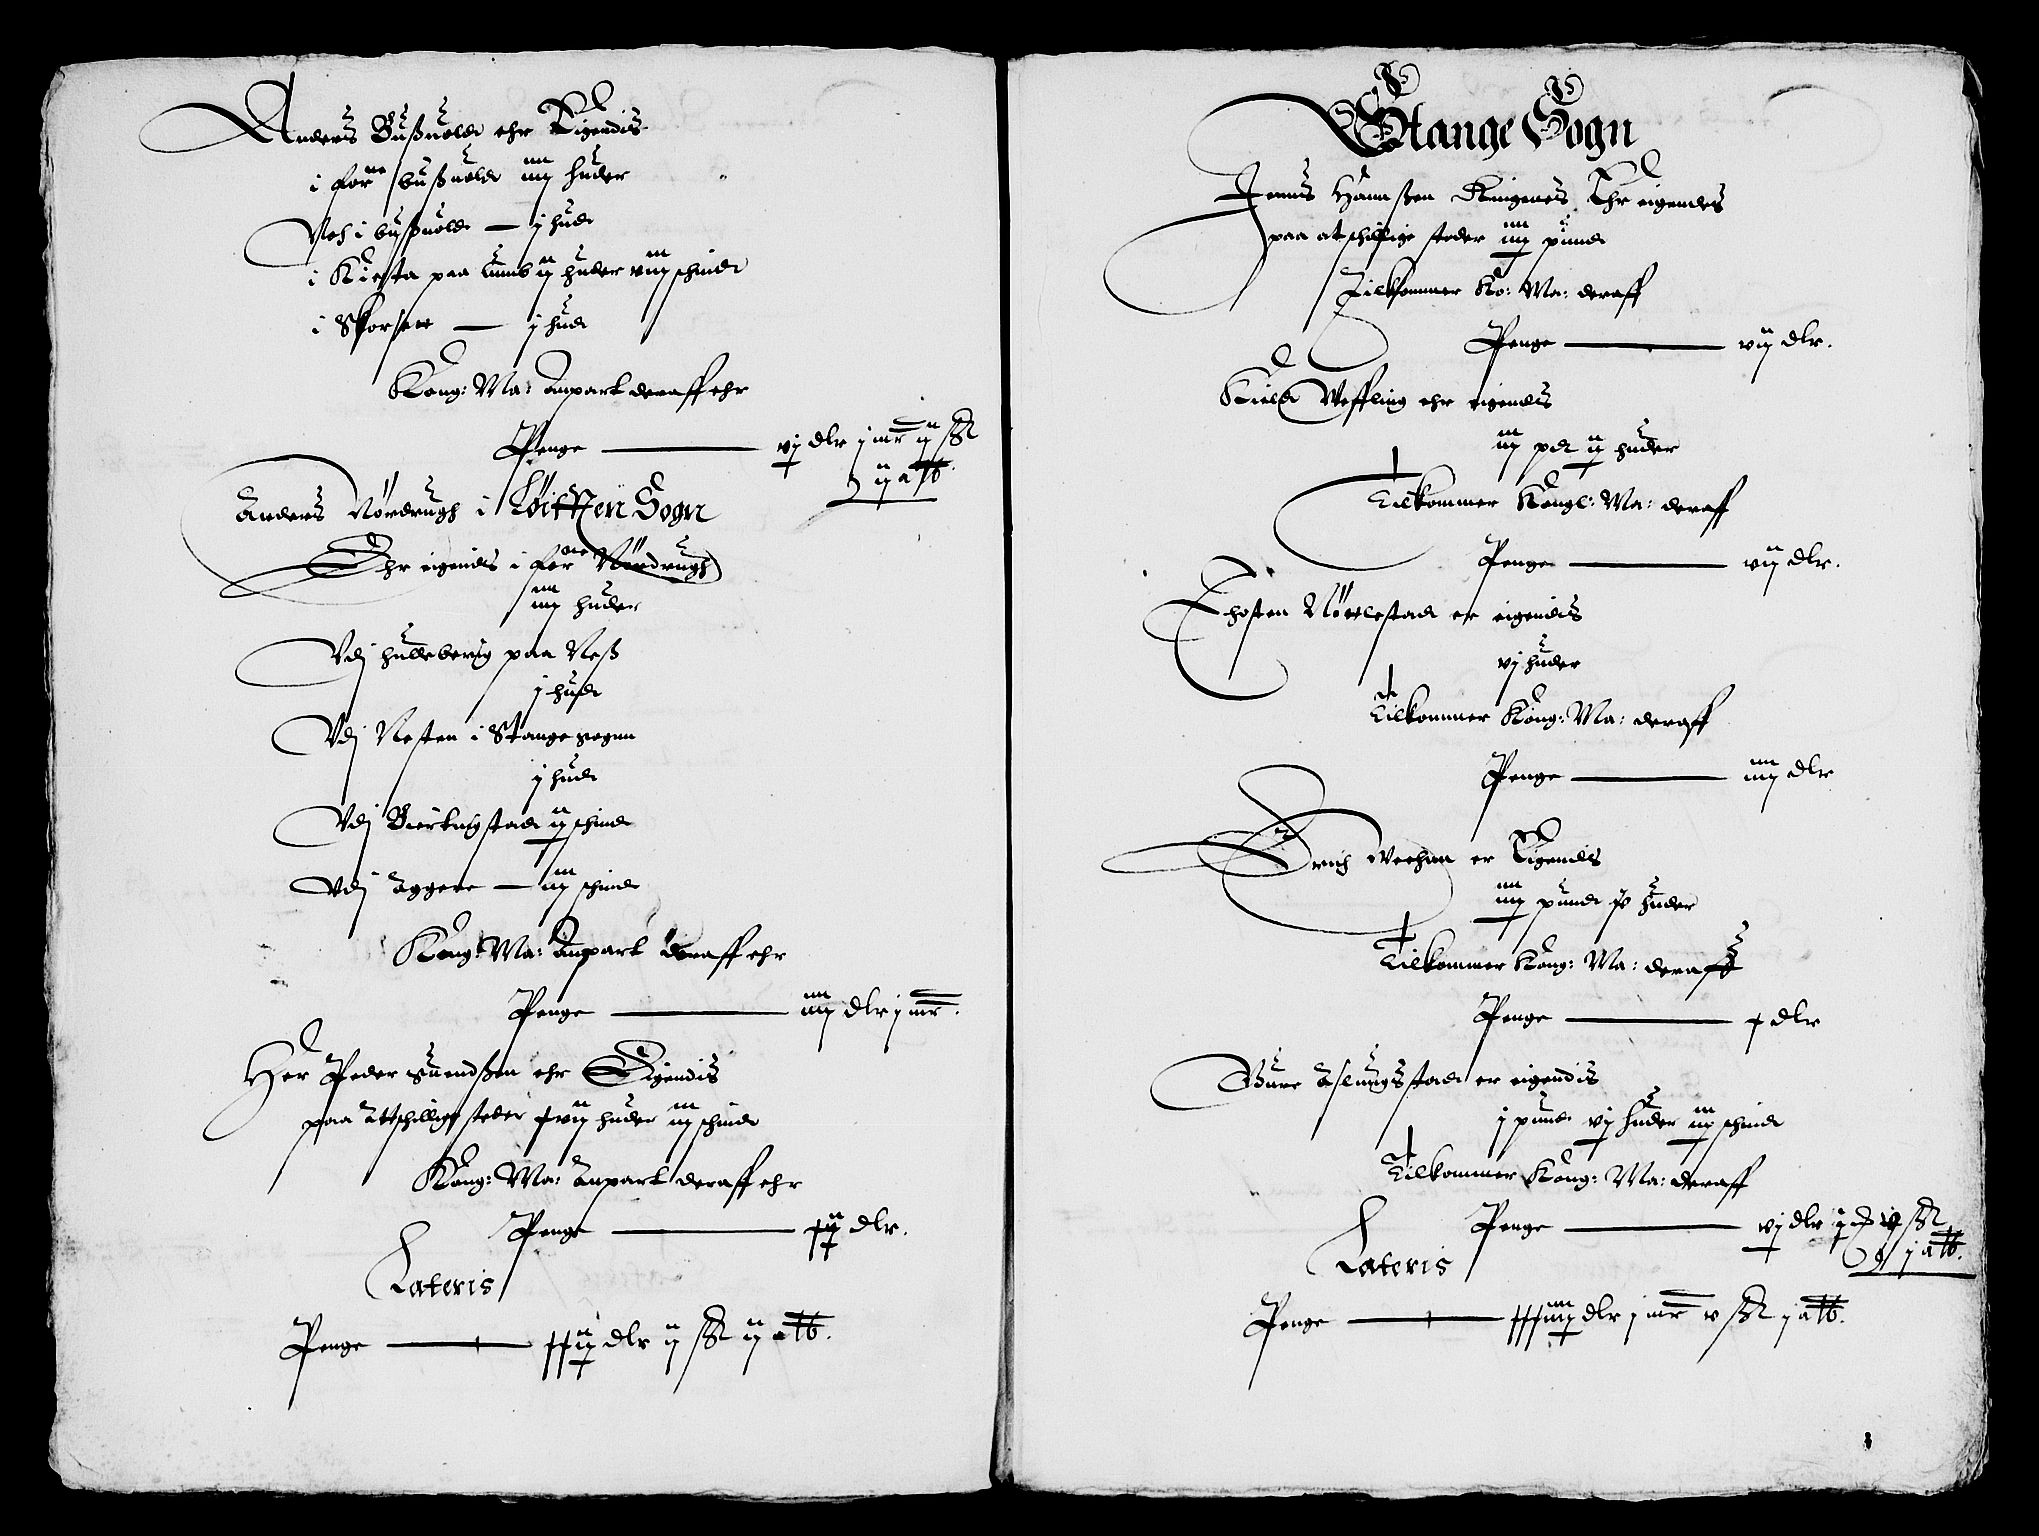 Anders Bußuold ehr Eigendis
i forne bußuold iiij huder
Noch i bußuold — j hud
i Kiesta paa Lumb ij huder viij schind
i Skorsen — j hud
Kong: Ma: Anpart deraff ehr
Penge — vj dlr j mrk ij ß
ij alb.
Anders Nordrugh i Løitten Sogn
Ehr eigendis i forne Nordrugh
iiij huder
Vdj hulleberig paa Neß
j hud
Vdj Nesten i Stange sognn
j hud
Vdj Bierkugstad ij schind
Vdj Aggere — iij schind
Kong: Ma: Anpart deraff ehr
Penge — iiij dlr j mrk.
Her Peder Suendßen ehr Eigendis
paa Attschillige steder xvij huder iij schind
Kong: Ma: Anpart deraff ehr
Penge — xij dlr.
Lateris
Penge — xxij dlr ij ß ij alb.
Stange Sogn
Jenns Hannßen Ringenes Ehr eigendes
paa atschillige steder iiij pund
Tilkommer Ko: Ma: deraff
Penge — vij dlr.
Kield Weffling ehr eigendis
iij pd ij huder
Tilkommer Kongl: Ma: deraff
Penge — vij dlr.
Thosten Nørlestad er eigendis
vj huder
Tilkommer Kong: Ma: deraff
Penge — iiij dlr
Erich Weehnn er Eigendis
iiij pund huder
Tilkommer Kong: Ma: deraff
Penge — x dlr
Gure Aslaugsstad er eigendis
j pund vj huder iij schind
Tilkommer Kong: Ma: deraff
Penge — vj dlr ß
j alb.
Lateris
Penge — xxxiiij dlr j mrk v ß j alb.